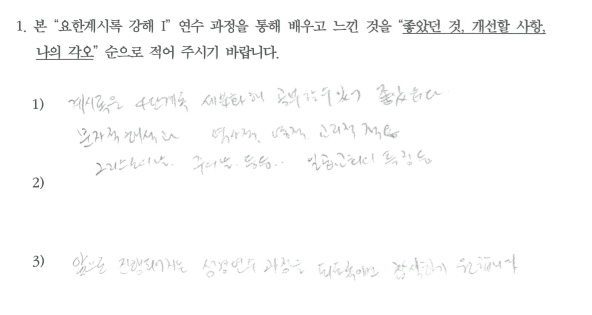 1. 본 “요한계시록 강해 I” 연수 과정을 통해 배우고 느낀 것을 “좋았던 것, 개선할 사항,
나의 각오” 순으로 적어 주시기 바랍니다.
1) 계시록은 4단계로 세분화해 공부할수있어 좋았습니다
문자적해석과 역사적, 영적, 교리적 적용
그리스도의날. 주의날. 등등.. 일곱교회의 특징 등
2)
3) 앞으로 진행되어지는 성경연수 과정은 되도록이면 참석하게 원합니다